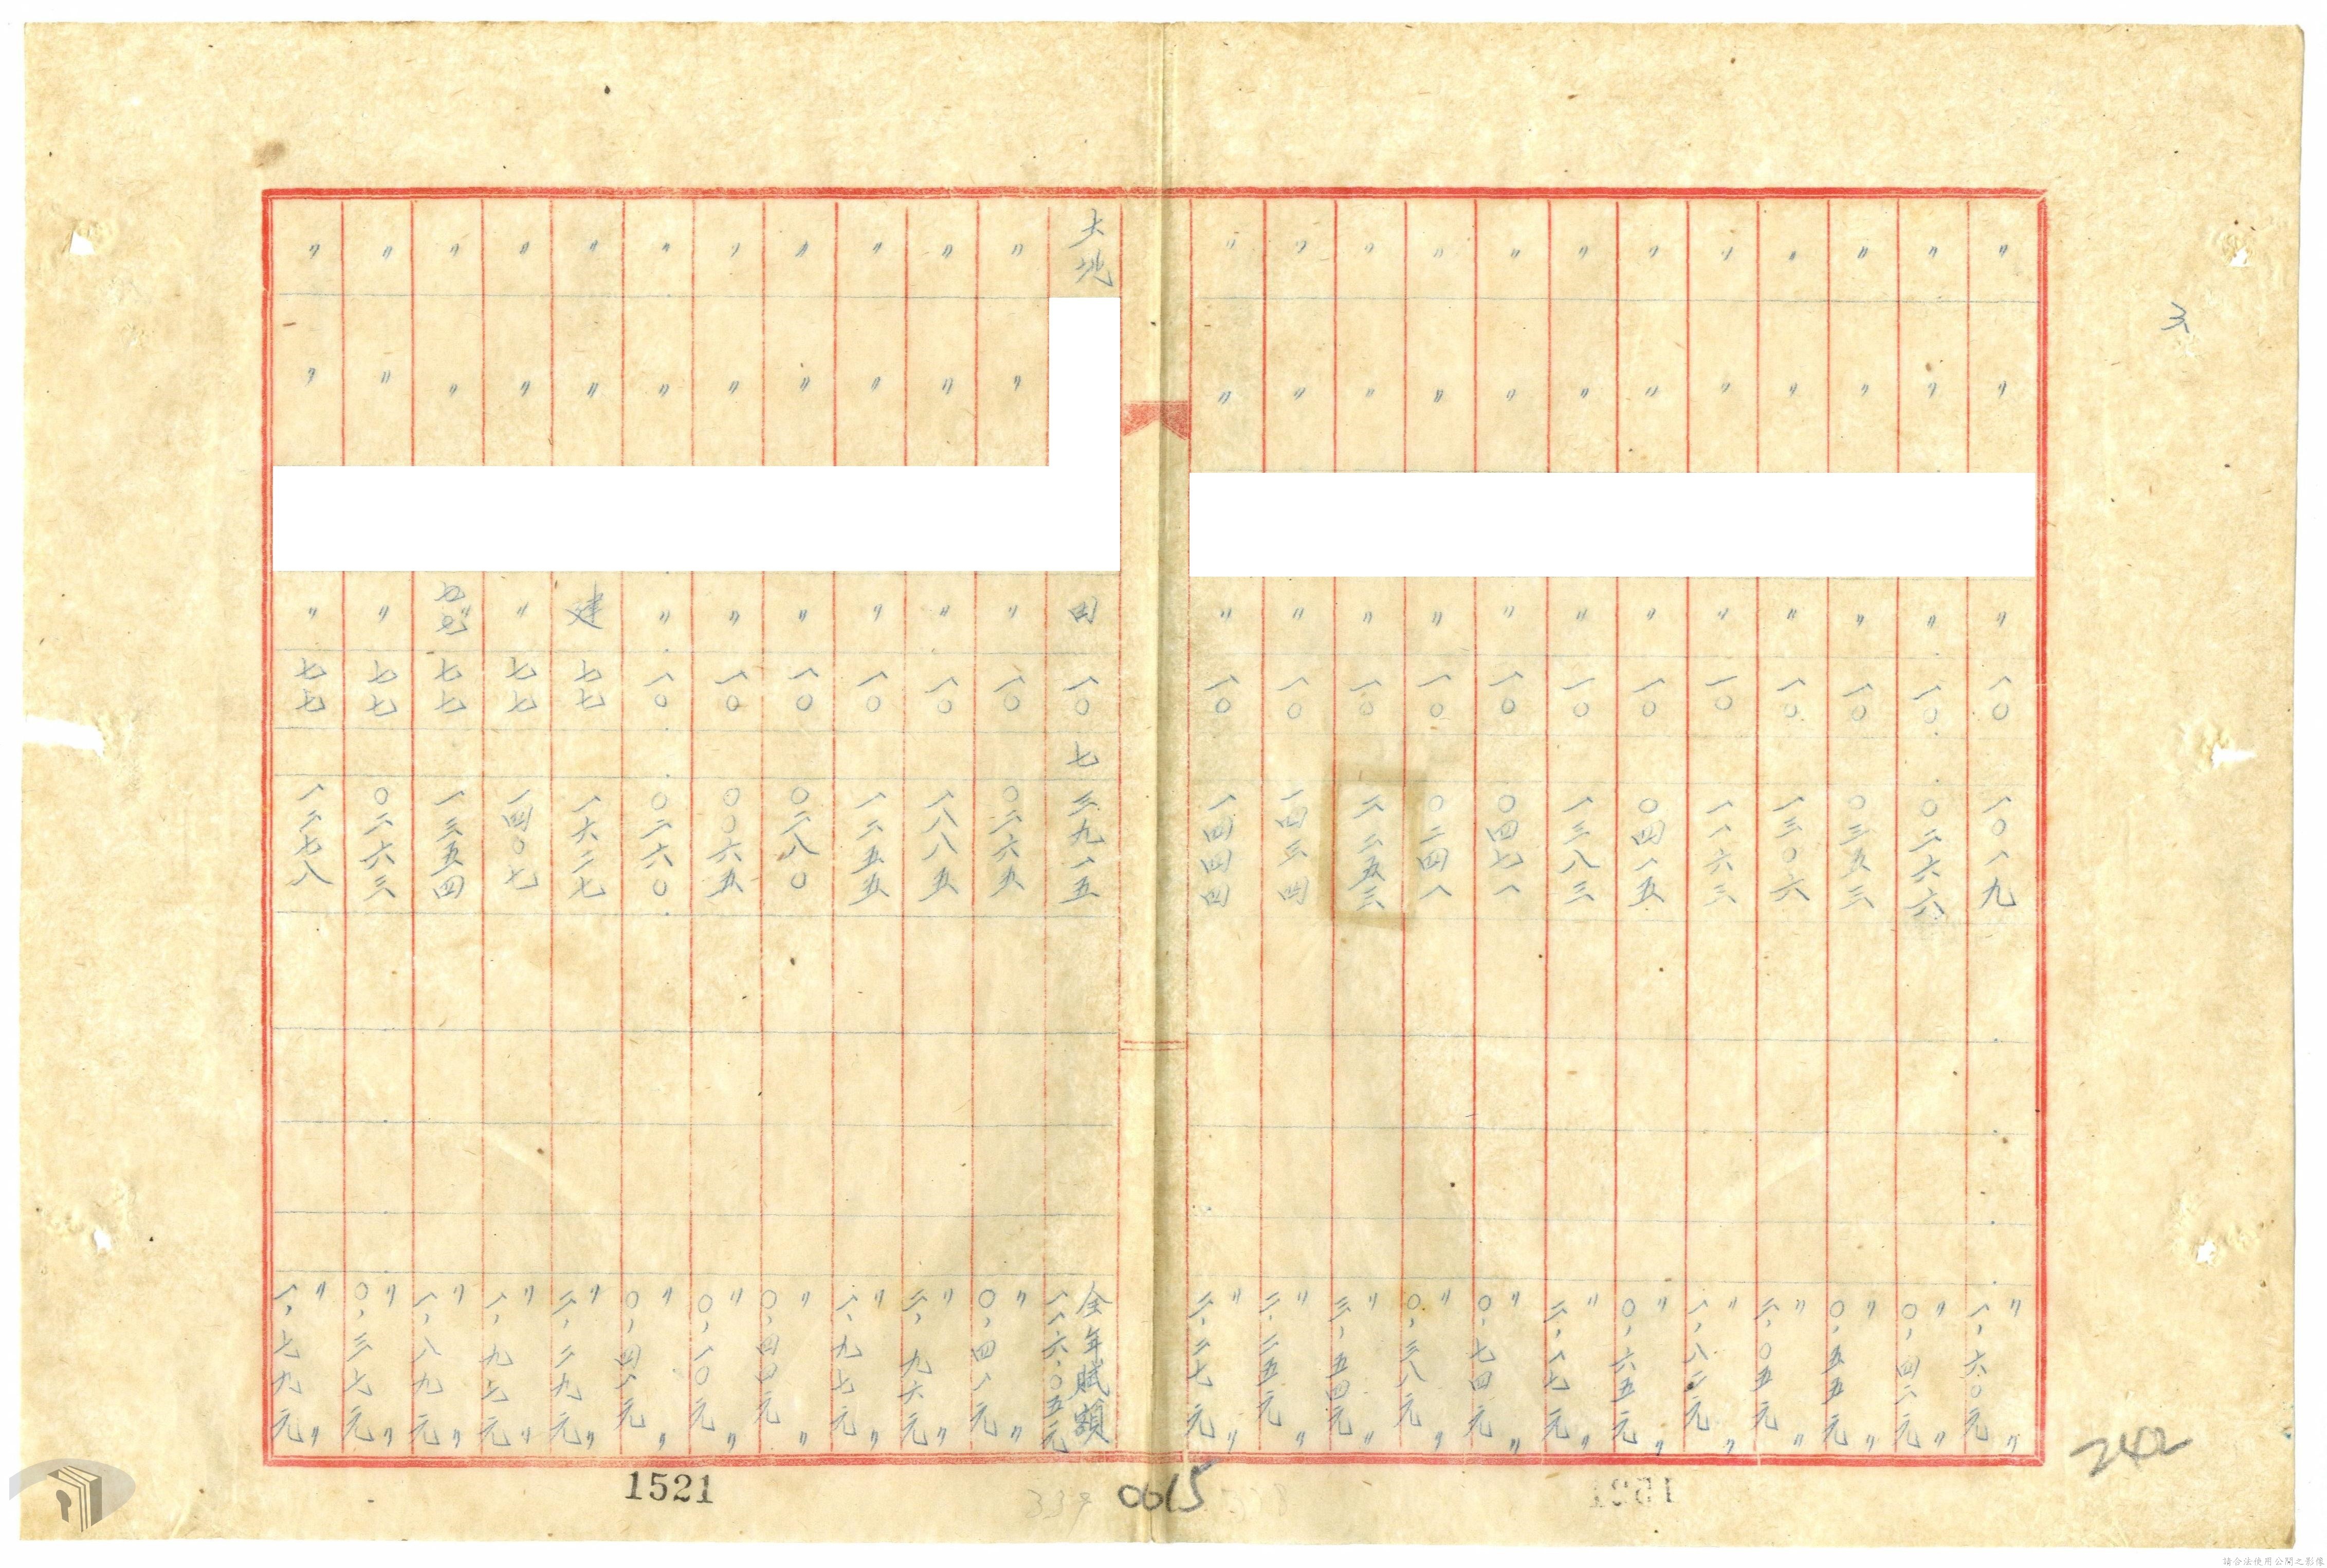 〃 〃 〃 一〇 一〇一九 〃 一、六〇元 〃
〃 〃 〃 一〇 〇二六六 〃 〇、四二元 〃
〃 〃 〃 一〇 〇三五三 〃 〇、五五元 〃
〃 〃 〃 一〇 一三〇六 〃 二、〇五元 〃
〃 〃 〃 一〇 一一六三 〃 一、八二元 〃
〃 〃 〃 一〇 〇四一五 〃 〇、六五元 〃
〃 〃 〃 一〇 一三八三 〃 二、一七元 〃
〃 〃 〃 一〇 〇四七一 〃 〇、七四元 〃
〃 〃 〃 一〇 〇二四一 〃 〇、三八元 〃
〃 〃 〃 一〇 二二五三 〃 三、五四元 〃
〃 〃 〃 一〇 一四三四 〃 二、二五元 〃
〃 〃 〃 一〇 一四四四 〃 二、二七元 〃
大地 田 一〇 七 三九一五 全年賦額 一一六、〇五元
〃 〃 〃 一〇 〇二六五 〃 〇、四一元 〃
〃 〃 〃 一〇 一八八五 〃 二、九六元 〃
〃 〃 〃 一〇 一二五五 〃 一、九七元 〃
〃 〃 〃 一〇 〇二八〇 〃 〇、四四元 〃
〃 〃 〃 一〇 〇〇六五 〃 〇、一〇元 〃
〃 〃 〃 一〇 〇二六〇 〃 〇、四一元 〃
〃 〃 建 七七 一六二七 〃 二、二九元 〃
〃 〃 〃 七七 一四〇七 〃 一、九七元 〃
〃 〃 七七 一三五四 〃 一、八九元 〃
〃 〃 〃 七七 〇二六三 〃 〇、三七元 〃
〃 〃 〃 七七 一二七八 〃 一、七九元 〃
242
1521
339
0615
338
1521
請合法使用公開之影像